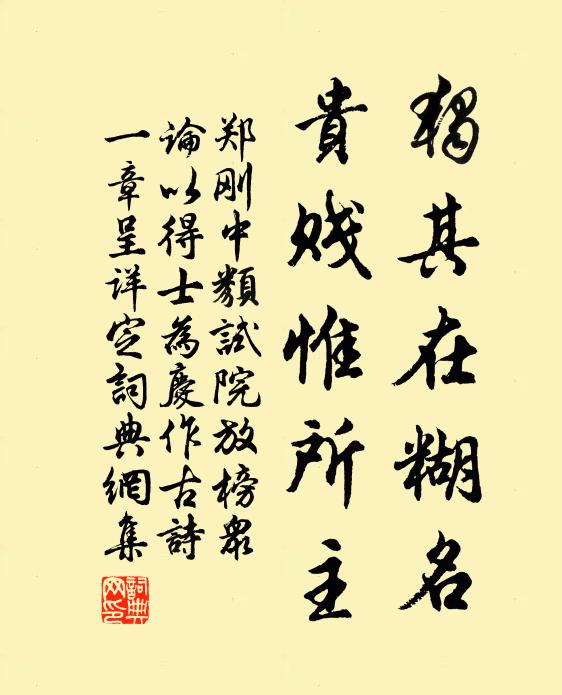 獨其在糊名
貴賤惟所主
郑刚中類試院放榜眾
論以得士為慶作古詩
一章呈详定詞典網集
詞典网印